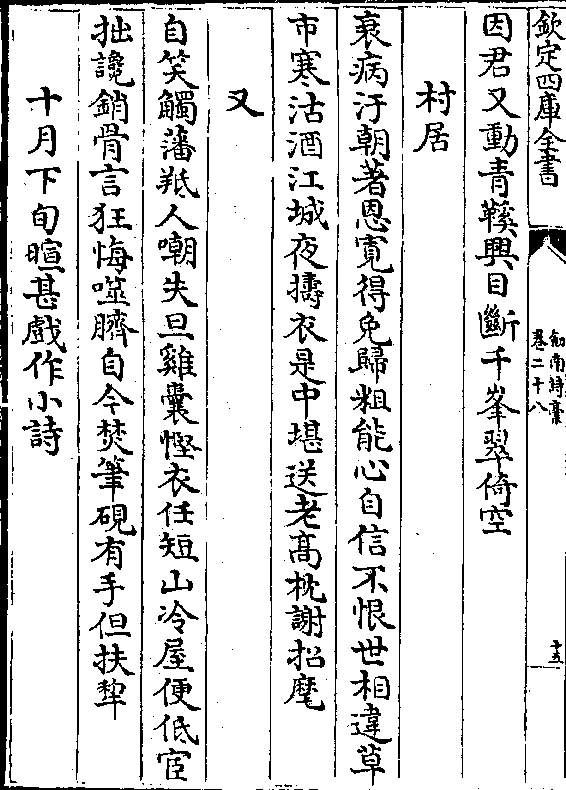 欽定四庫全書
劍南詩稾
卷二十八
十五
因君又動青鞵興目斷千峯翠倚空
村居
衰病汙朝著恩寬得免歸粗能心自信不恨世相違草
市寒沽酒江城夜擣衣是中堪送老髙枕謝招麾
又
自笑觸藩羝人嘲失旦雞囊慳衣任短山冷屋便低宦
拙讒銷骨言狂悔噬臍自今焚筆硯有手但扶犂
十月下旬暄甚戲作小詩